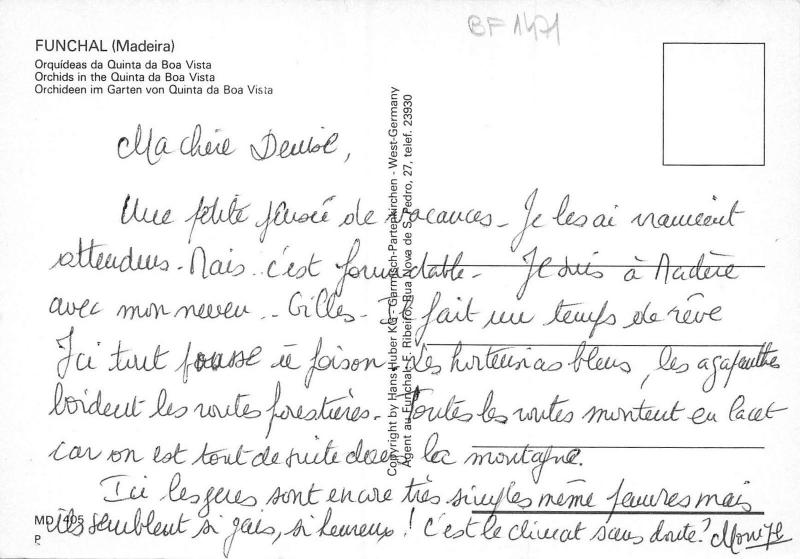 BF 1471
FUNCHAL (Madeira)
Orquídeas da Quinta da Boa Vista
Orchids in the Quinta da Boa Vista
Orchideen im Garten von Quinta da Boa Vista
Copyright by Hans Huber KG - Garmisch-Partenkirchen - West-Germany
Agent au Funchal: F. Ribeiro, Rua Nova de S. Pedro, 27, telef. 23930
Ma chère Denise,
Une petite pensée de vacances - Je les ai vraiment
attendues - Mais c'est formidable - Je suis à Madère
avec mon neveu - Gilles - Il fait un temps de rêve
Ici tout pousse à foison. Les hortensias bleus, les agapanthes
bordent les routes forestières. Toutes les routes montent en lacet
car on est tout de suite dans la montagne.
Ici les gens sont encore très simples même pauvres mais
ils semblent si gais, si heureux ! c'est le climat sans doute ?
MD 405
P